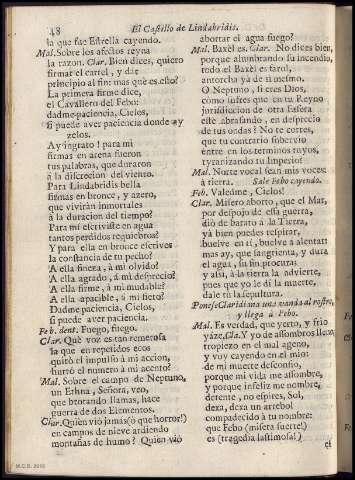 48
El Castillo de Lindabridis.
la que fue Estrella cayendo.
Mal. Sobre los afectos reyna
la razon. Clar. Bien dices, quiero
firmar el cartel, y dar
principio al fin: mas què es esto?
La primera firme dice,
el Cavallero del Febo:
dadme paciencia, Cielos,
si puede aver paciencia donde ay
zelos.
Ay ingrato! para mi
firmas en arena fueron
tus palabras, que duraron
à la discrecion del viento.
Para Lindabridis bella
firmas en bronce, y azero,
que vivirán inmortales
à la duracion del tiempo?
Para mi escriviste en agua
tantos perdidos requiebros?
Y para ella en bronce escrives
la constancia de tu pecho?
A ella fineza, à mi olvido?
A ella agrado, à mi desprecio?
A ella firme, à mi mudable?
A ella apacible, à mi fiero?
Dadme paciencia, Cielos,
si puede aver paciencia.
Feb. dent. Fuego, fuego.
Clar. Què voz es tan temerosa
la que en repetidos ecos
quitò el impulso à mi accion,
hurtò el numero à mi acento?
Mal. Sobre el campo de Neptuno,
un Ethna, Señora, veo,
que brotando llamas, hace
guerra de dos Elementos.
Clar. Quien viò jamàs (ò que horror!)
en campos de nieve ardiendo
montañas de humo? Quien viò
abortar el agua fuego?
Mal. Baxèl es. Clar. No dices bien,
porque alumbrando su incendio,
todo el Baxèl es farol,
antorcha yà de sì mesmo.
O Neptuno, si eres Dios,
como sufres que en tu Reyno
jurisdiccion de otra Esfera
estè abrasando, en desprecio
de tus ondas? No te corres,
que tu contrario sobervio
entre en los terminos tuyos,
tyranizando tu Imperio?
Mal. Norte vocal sean mis voces:
à tierra. Sale Febo cayendo.
Feb. Valedme, Cielos!
Clar. Misero aborto, que el Mar,
por despojo de esta guerra,
diò de barato à la Tierra,
yà bien puedes respirar,
buelve en tì, buelve à alentar:
mas ay, que sangrienta, y dura
el agua, su fin procura:
y assi, à la tierra la advierte,
pues que yo le dì la muerte,
dale tù la sepultura.
Ponese Claridiana una vanda al rostro,
y llega à Febo.
Mal. Es verdad, que yerto, y frio
yaze. Cla. Y yo de assombros lleno,
tropiezo en el mal ageno,
y voy cayendo en el mio:
de mi muerte desconfio,
porque mi vida me assombre,
y porque infeliz me nombre,
detente, no espires, Sol,
dexa, dexa un arrebol
compadecido à tu nombre:
que Febo (misera suerte!)
es (tragedia lastimosa!)
el
M.C.D. 2022